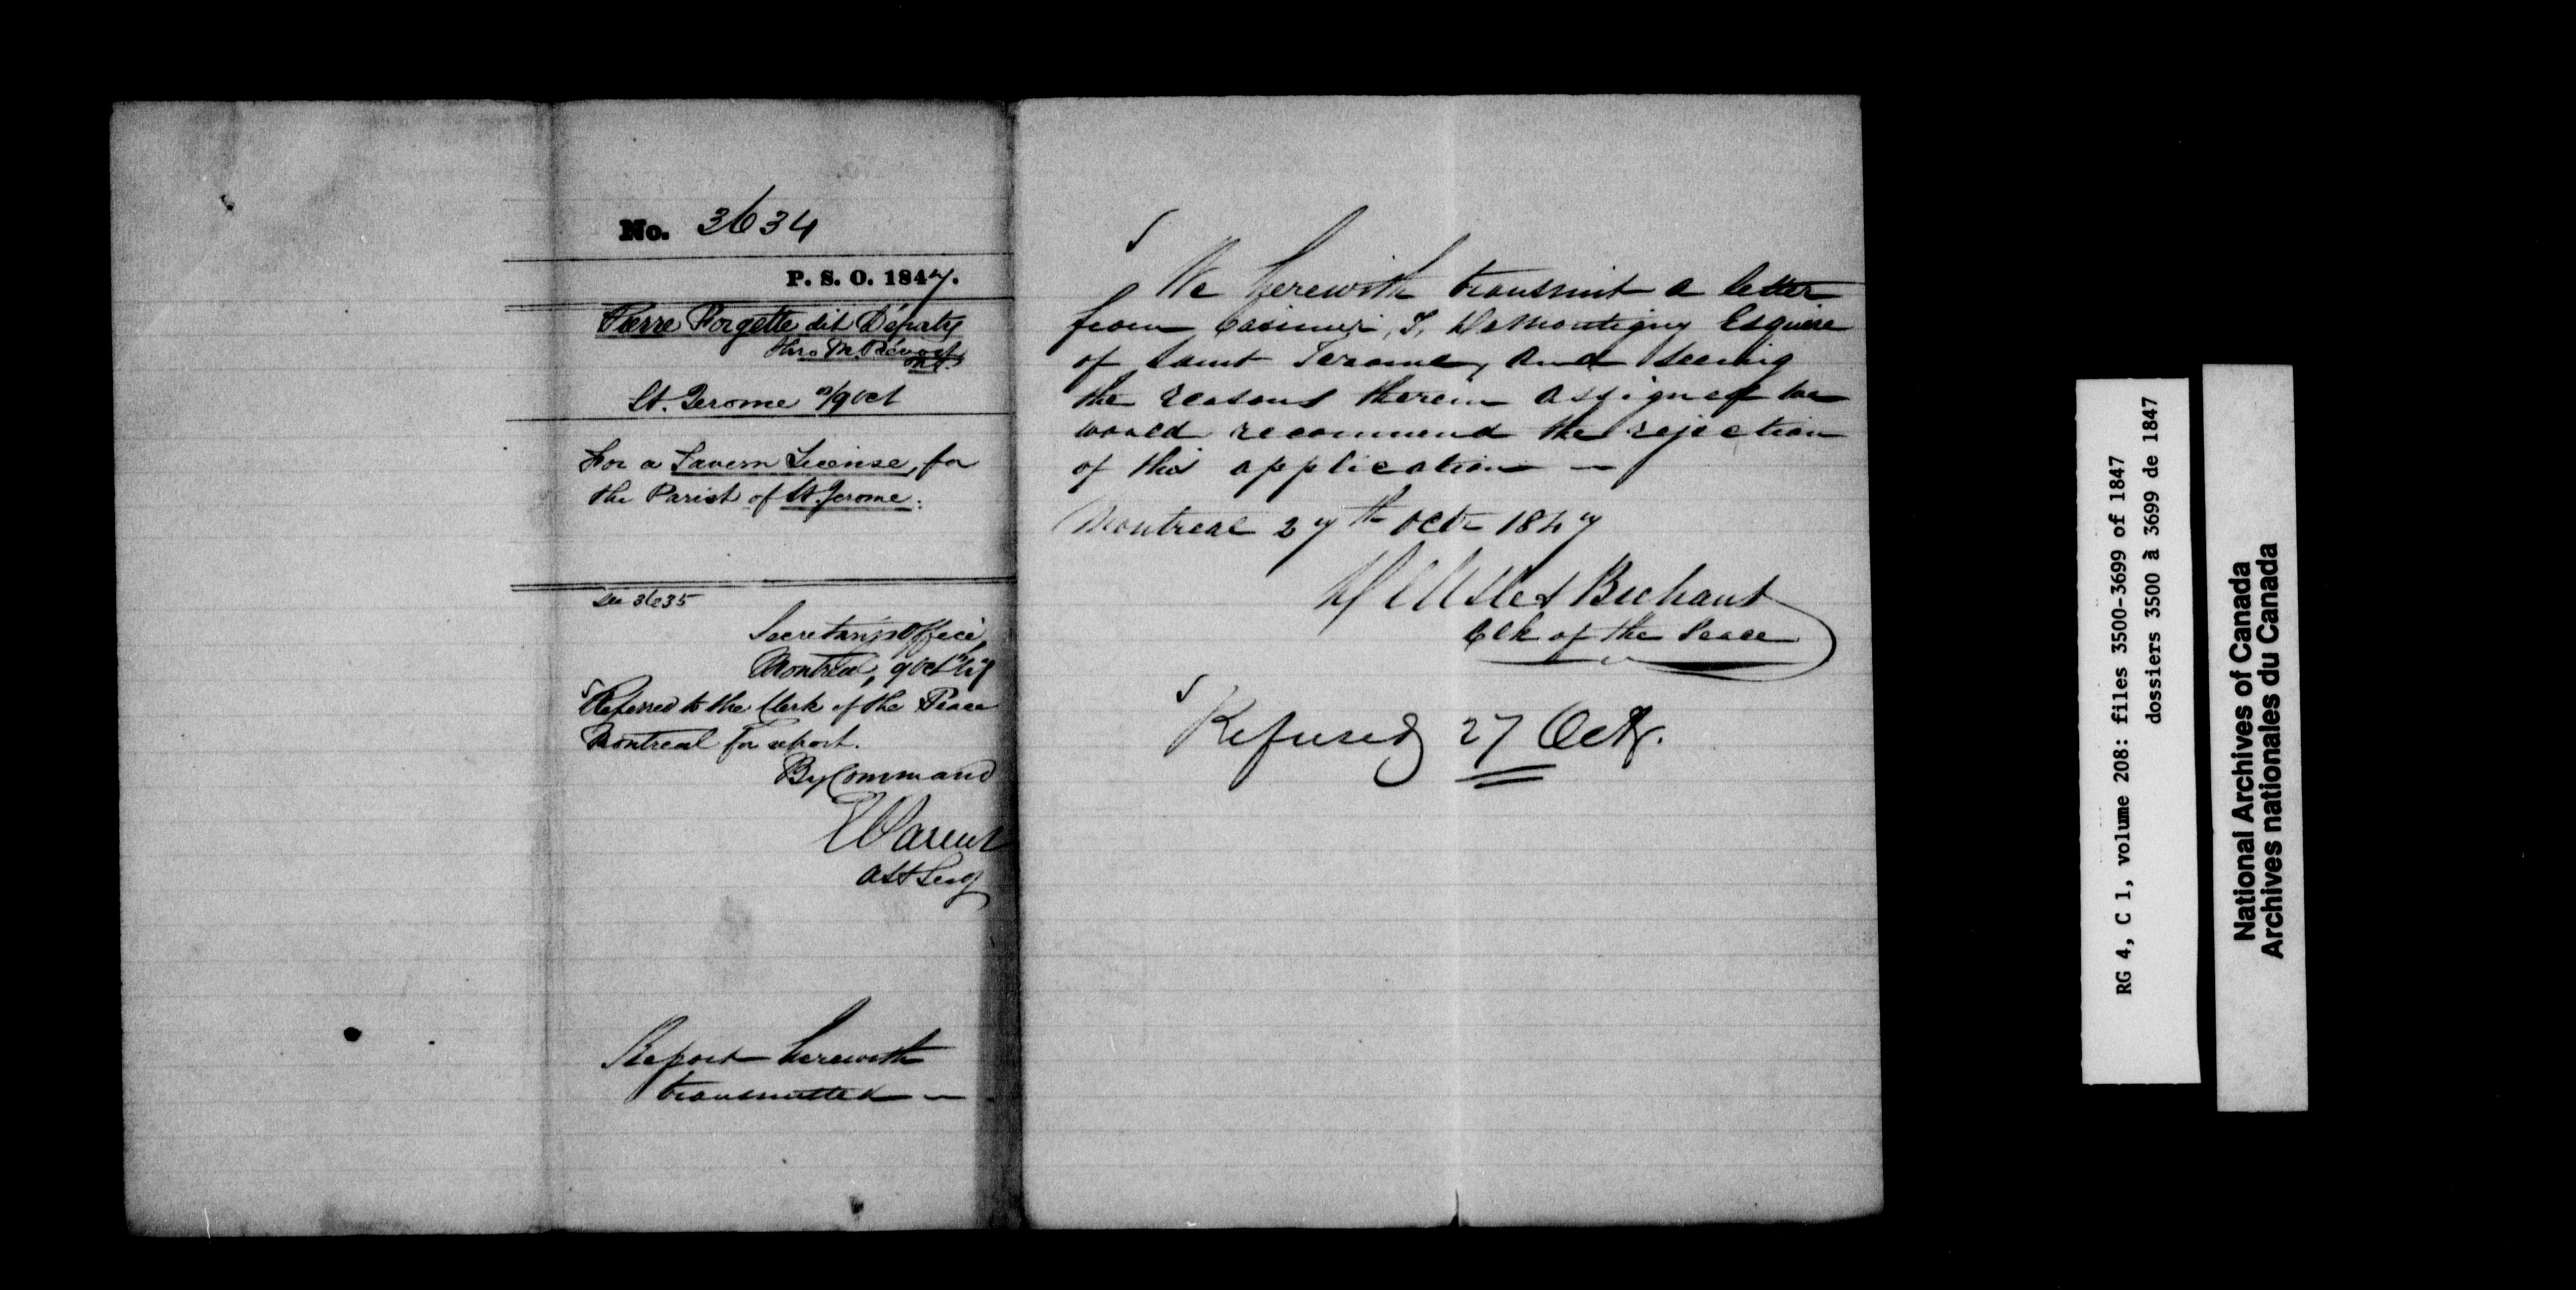 No. 3634
P. S. O. 1847.
Pierre Forgette dit Départy
thro M. Prévost
St. Jerome 9 Oct
For a Tavern License, for
the Parish of St. Jerome.
See 3635
Secretary's Office,
Montreal, 9 Oct
Referred to the Clerk of the Peace
Montreal for report.
By Command
E Parent
Asst Secy
Report herewith
transmitted —
We herewith transmit a letter
from Casimir T. DeMontigny Esquire
of Saint Jerome, and seeing
the reasons therein assigned we
would recommend the rejection
of this application —
Montreal 27th Octr 1847
Delisle & Brehaut
Clk of the Peace
Refused 27 Octr.
RG 4, C 1, volume 208: files 3500-3699 of 1847
dossiers 3500 à 3699 de 1847
National Archives of Canada
Archives nationales du Canada